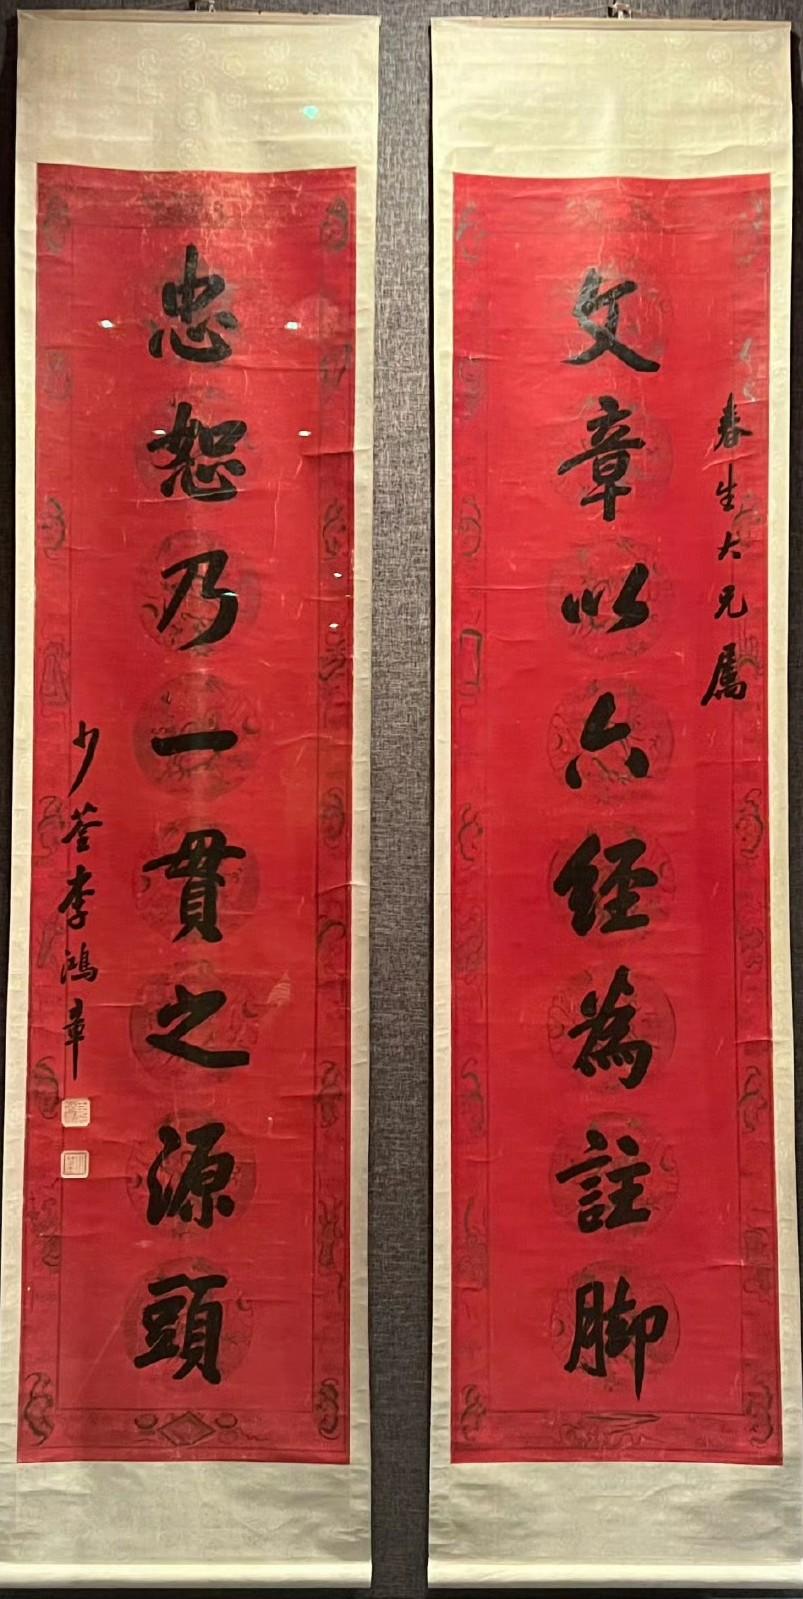 春生大兄屬
文章以六經為註脚
忠恕乃一貫之源頭
少荃李鴻章